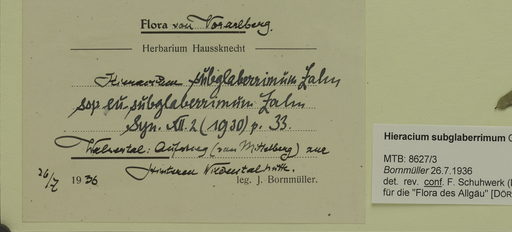 Flora von Vorarlberg.
Herbarium Haussknecht
Hieracium subglaberrimum Zahn
ssp. eu-subglaberrimum Zahn
Syn. XII. 2 (1930) p. 33.
Walsertal: Aufstieg (von Mittelberg) zur
Hinteren Wildental
26/7 1936 leg. J. Bornmüller.
Hieracium subglaberrimum
MTB: 8627/3
Bornmüller 26.7.1936
det. rev. conf. F. Schuhwerk
für die "Flora des Allgäu"